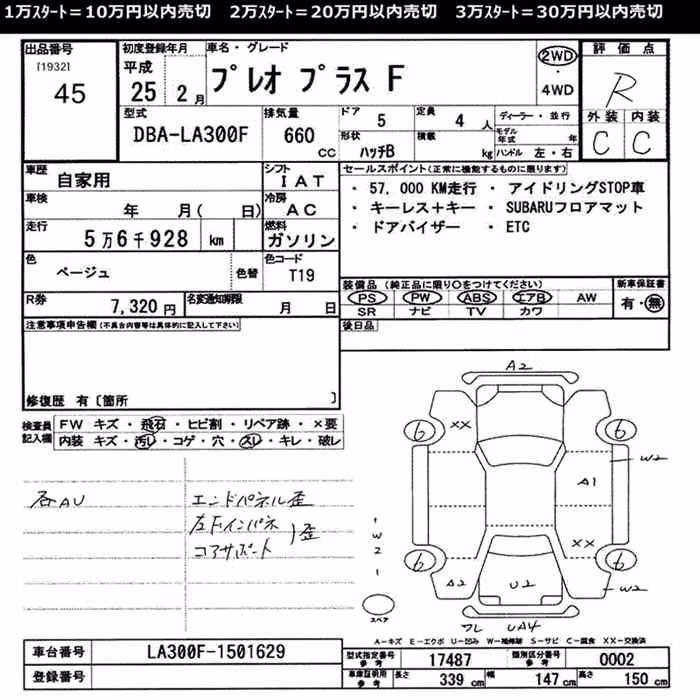 1万ｽﾀｰﾄ＝10万円以内売切　2万ｽﾀｰﾄ＝20万円以内売切　3万ｽﾀｰﾄ＝30万円以内売切
出品番号
[1932]
45
初度登録年月
平成
25 2月
車名・グレード
プレオ プラス F
2WD
・
4WD
評価点
R
外装 内装
C C
型式
DBA-LA300F
排気量
660 cc
ドア
5
定員
4 人
形状
ハッチB
積載
kg
ディーラー・並行
モデル年式 年
ハンドル 左・右
車歴
自家用
シフト
IAT
車検
年 月( 日)
冷房
AC
走行
5万6千928 km
燃料
ガソリン
色
ベージュ
色替
色コード
T19
R券
7,320円
名変通知期限
月 日
セールスポイント(正常に機能するものに限ります)
・57.000KM走行 ・アイドリングSTOP車
・キーレス＋キー ・SUBARUフロアマット
・ドアバイザー ・ETC
装備品 (純正品に限り○をつけてください)
PS PW ABS エアB AW
SR ナビ TV カワ
新車保証書
有・無
後日品
注意事項申告欄(不具合内容等は具体的に記入して下さい)
修復歴 有〔箇所 〕
検査員記入欄
FW キズ・飛石・ヒビ割・リペア跡・×要
内装 キズ・汚レ・コゲ・穴・スレ・キレ・破レ
各AU
エンドパネル歪
左Fインパネ
コアサポート
歪
A2
XX
6
6
W2
A1
1
W
2
1
XX
6
6
A2
U2
W2
スペア
フレ UA4
A－キズ E－エクボ U－凹み W－補修跡 S－サビ C－腐食 XX－交換済
車台番号
LA300F-1501629
登録番号
型式指定番号
参考
17487
類別区分番号
参考
0002
車庫証明用
参考
長さ
339 cm
幅
147 cm
高さ
150 cm